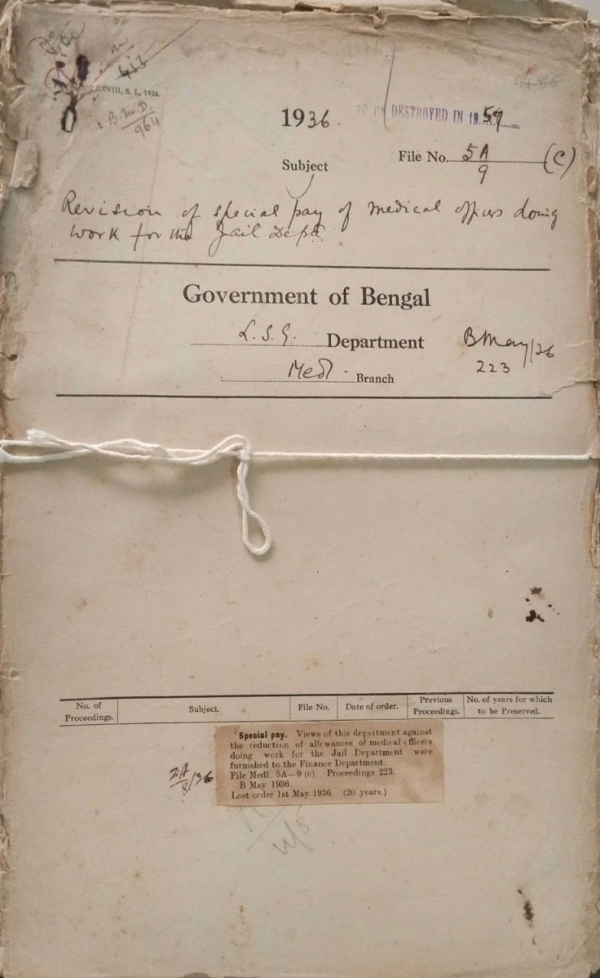 XXVIII, S. L, 1924.
B.M.D.
964
1936.
TO BE DESTROYED IN 1957
File No. 5A (C)
9
Subject
Revision of special pay of medical officers doing
work for the Jail Dept.
Government of Bengal
L.S.G. Department
B May/36
223
Medl. Branch
No. of Proceedings.
Subject.
File No.
Date of order.
Previous Proceedings.
No. of years for which to be Preserved.
Special pay. Views of this department against
the reduction of allowances of medical officers
doing work for the Jail Department were
furnished to the Finance Department.
File Medl. 5A—9 (c). Proceedings 223.
B May 1936.
Last order 1st May 1936. (20 years.)